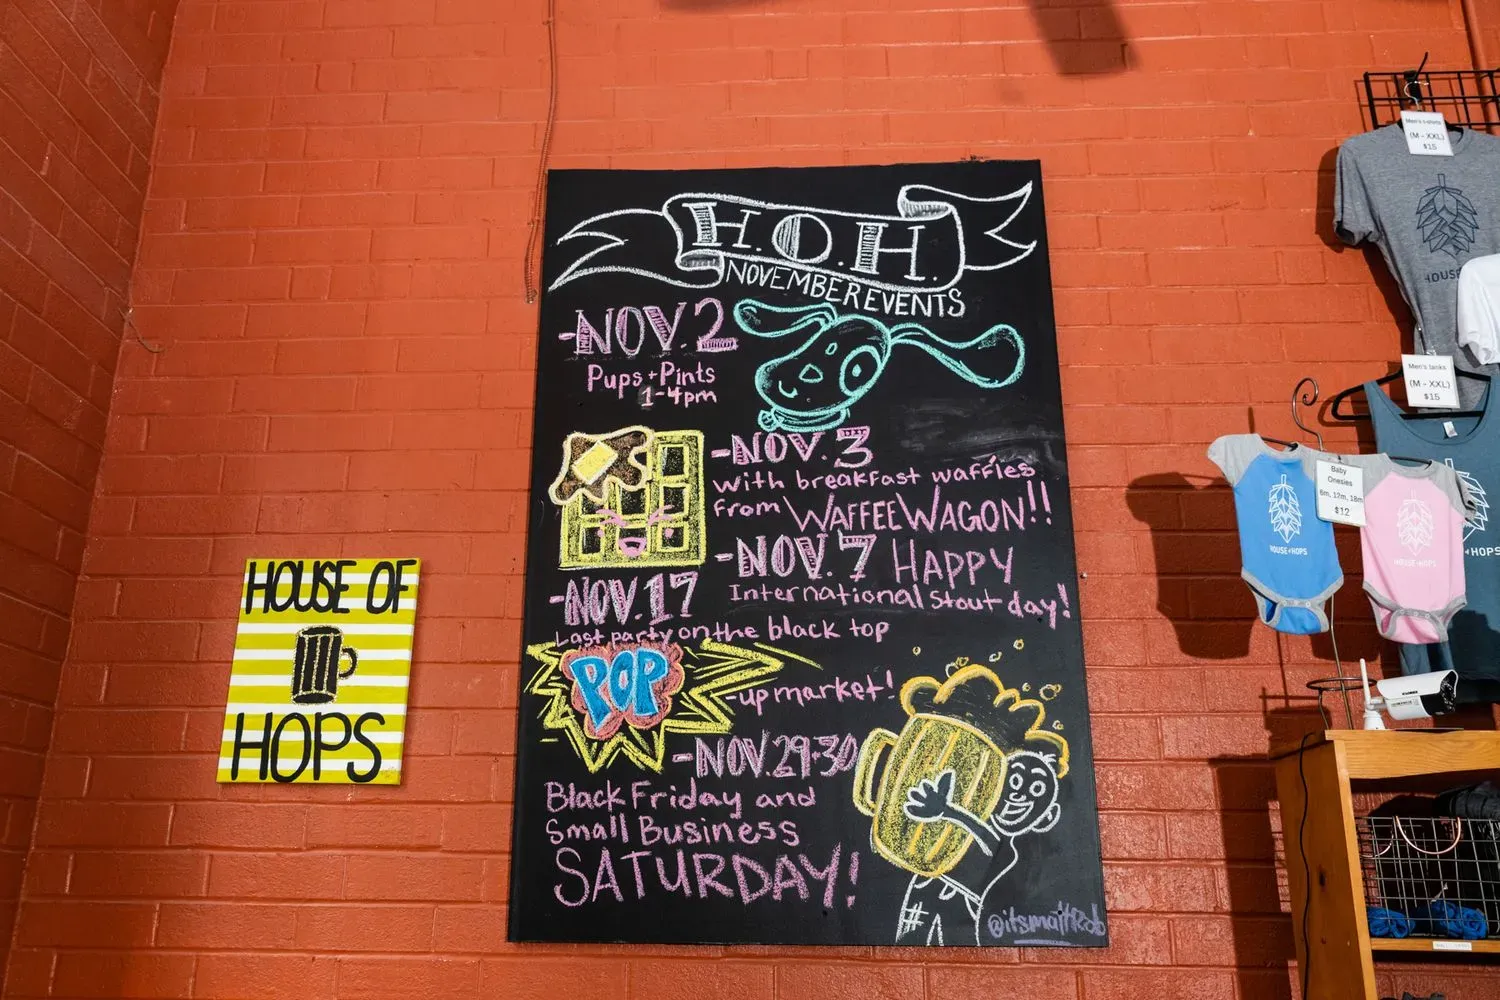 H.O.H.
NOVEMBER EVENTS
-NOV. 2
Pups + Pints
1-4pm
-NOV. 3
with breakfast waffles
from WAFFEE WAGON!!
-NOV. 7 HAPPY
International Stout day!
-NOV. 17
Last party on the black top
POP
-up market!
-NOV. 29-30
Black Friday and
Small Business
SATURDAY!
HOUSE OF
HOPS
Men's t-shirts
(M - XXL)
$15
HOUSE
Men's tanks
(M - XXL)
$15
Baby
Onesies
6m, 12m, 18m
$12
HOUSE OF HOPS
HOUSE OF HOPS
HOPS